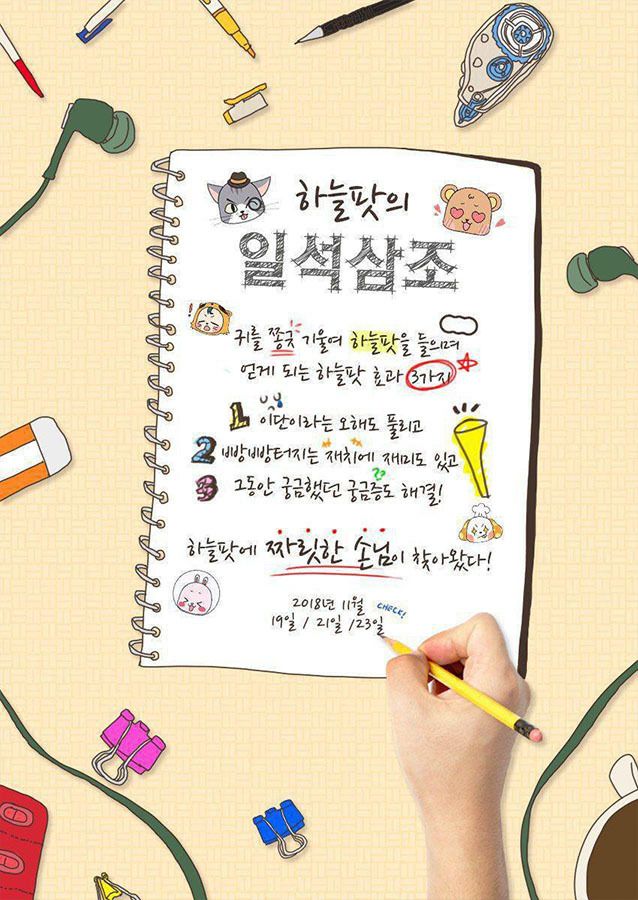 하늘팟의
일석삼조
귀를 쫑긋 기울여 하늘팟을 들으며
얻게 되는 하늘팟 효과 3가지
1 이단이라는 오해도 풀리고
2 빵빵터지는 재치에 재미도 있고
3 그동안 궁금했던 궁금증도 해결!
??
하늘팟에 짜릿한 손님이 찾아왔다!
2018년 11월 CHECK!
19일 / 21일 / 23일